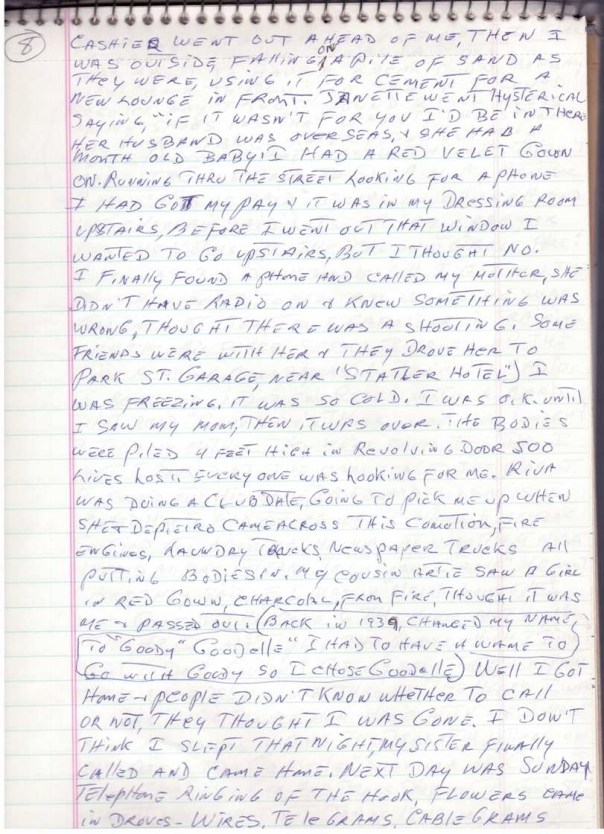 8
CASHIER WENT OUT AHEAD OF ME, THEN I
WAS OUTSIDE FALLING ON A PILE OF SAND AS
THEY WERE, USING IT FOR CEMENT FOR A
NEW LOUNGE IN FRONT. JANETTE WENT HYSTERICAL
SAYING, "IF IT WASN'T FOR YOU I'D BE IN THERE
HER HUSBAND WAS OVERSEAS, & SHE HAD A
MONTH OLD BABY! I HAD A RED VELET GOWN
ON. RUNNING THRU THE STREET LOOKING FOR A PHONE
I HAD GOT MY PAY & IT WAS IN MY DRESSING ROOM
UPSTAIRS, BEFORE I WENT OUT THAT WINDOW I
WANTED TO GO UPSTAIRS, BUT I THOUGHT NO.
I FINALLY FOUND A PHONE AND CALLED MY MOTHER, SHE
DIDN'T HAVE RADIO ON & KNEW SOMETHING WAS
WRONG, THOUGHT THERE WAS A SHOOTING. SOME
FRIENDS WERE WITH HER & THEY DROVE HER TO
PARK ST. GARAGE, NEAR "STATLER HOTEL") I
WAS FREEZING. IT WAS SO COLD. I WAS O.K. UNTIL
I SAW MY MOM, THEN IT WAS OVER. THE BODIES
WERE PILED 4 FEET HIGH IN REVOLVING DOOR 500
LIVES LOST! EVERYONE WAS LOOKING FOR ME. RIVA
WAS DOING A CLUB DATE, GOING TO PICK ME UP WHEN
SHE & DEPIETRO CAME ACROSS THIS COMOTION, FIRE
ENGINES, LAUNDRY TRUCKS, NEWSPAPER TRUCKS ALL
PUTTING BODIES IN. MY COUSIN ARTIE SAW A GIRL
IN RED GOWN, CHARCOAL, FROM FIRE, THOUGHT IT WAS
ME & PASSED OUT! (BACK IN 1939, CHANGED MY NAME,
TO "GOODY" GOODELLE" I HAD TO HAVE A NAME TO
GO WITH GOODY SO I CHOSE GOODELLE) WELL I GOT
HOME & PEOPLE DIDN'T KNOW WHETHER TO CALL
OR NOT, THEY THOUGHT I WAS GONE. I DON'T
THINK I SLEPT THAT NIGHT, MY SISTER FINALLY
CALLED AND CAME HOME. NEXT DAY WAS SUNDAY
TELEPHONE RINGING OF THE HOOK, FLOWERS CAME
IN DROVES - WIRES, TELEGRAMS, CABLEGRAMS